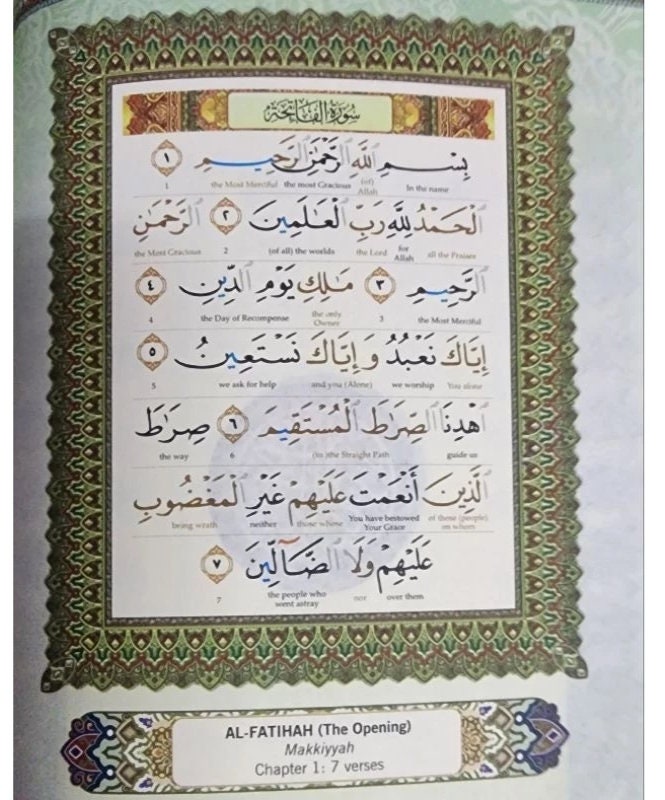 سُورَةُ الفَاتِحَةِ
بِسْمِ ٱللَّهِ ٱلرَّحْمَٰنِ ٱلرَّحِيمِ ١
In the name (of) Allah the most Gracious the Most Merciful 1
ٱلْحَمْدُ لِلَّهِ رَبِّ ٱلْعَٰلَمِينَ ٢ ٱلرَّحْمَٰنِ
all the Praises for Allah the Lord (of all) the worlds 2 the Most Gracious
ٱلرَّحِيمِ ٣ مَٰلِكِ يَوْمِ ٱلدِّينِ ٤
the Most Merciful 3 the only Owner the Day of Recompense 4
إِيَّاكَ نَعْبُدُ وَإِيَّاكَ نَسْتَعِينُ ٥
You alone we worship and you (Alone) we ask for help 5
ٱهْدِنَا ٱلصِّرَٰطَ ٱلْمُسْتَقِيمَ ٦ صِرَٰطَ
guide us (to) the Straight Path 6 the way
ٱلَّذِينَ أَنْعَمْتَ عَلَيْهِمْ غَيْرِ ٱلْمَغْضُوبِ
of those (people) on whom You have bestowed Your Grace those whose neither bring wrath
عَلَيْهِمْ وَلَا ٱلضَّآلِّينَ ٧
over them nor the people who went astray 7
AL-FATIHAH (The Opening)
Makkiyyah
Chapter 1: 7 verses